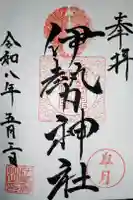 奉拝
伊勢神社
皐月
令和八年五月三日